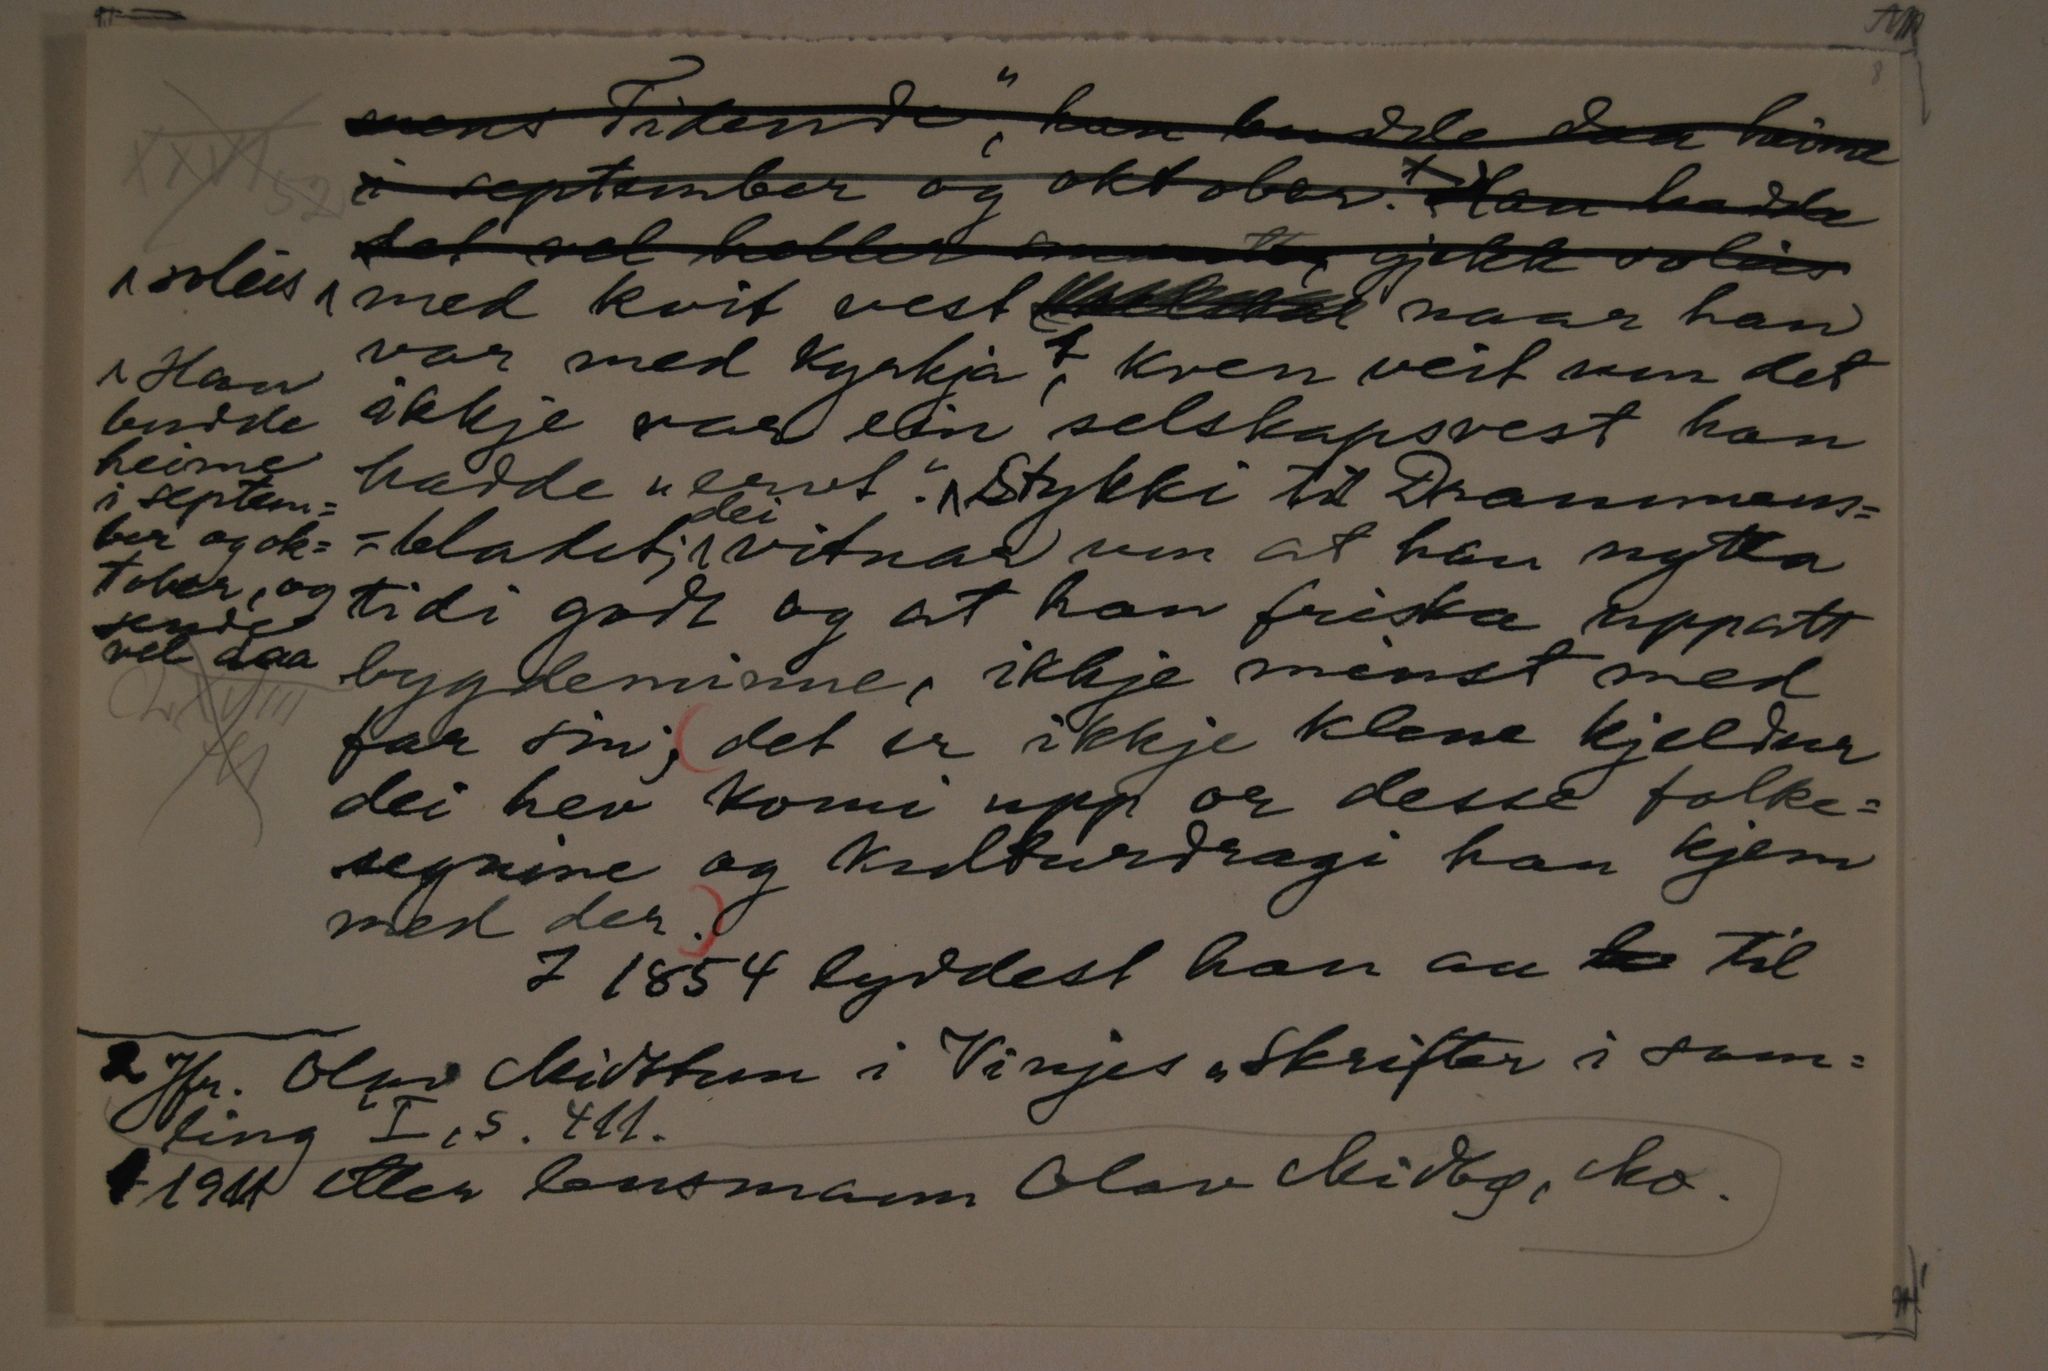 mens Tidende", han budde daa heime
i september og oktober. Han hadde
det vel heller smaatt, gjekk soleis
⁁ soleis ⁁ med kvit vest naar han
var med kyrkja, kven veit um det
ikkje var ein selskapsvest han
hadde "ervt". ⁁ Stykki til Drammens=
=bladet; ⁁ dei vitnar um at han nytta
tidi godt og at han friska uppatt
bygdeminne, ikkje minst med
far sin; (det er ikkje klene kjeldur
dei hev komi upp or desse folke=
segnine og kulturdragi han kjem
med der.)
I 1854 lyddest han au til
⁁ Han
budde
heime
i septem=
ber og ok=
tober, og
sende
vel daa
XXVI 52
LXVIII
2 Jfr. Olav Midttun i Vinjes "Skrifter i sam=
ling" I, s. 411.
1911 etter lensmann Olav Midbø, Mo.
8